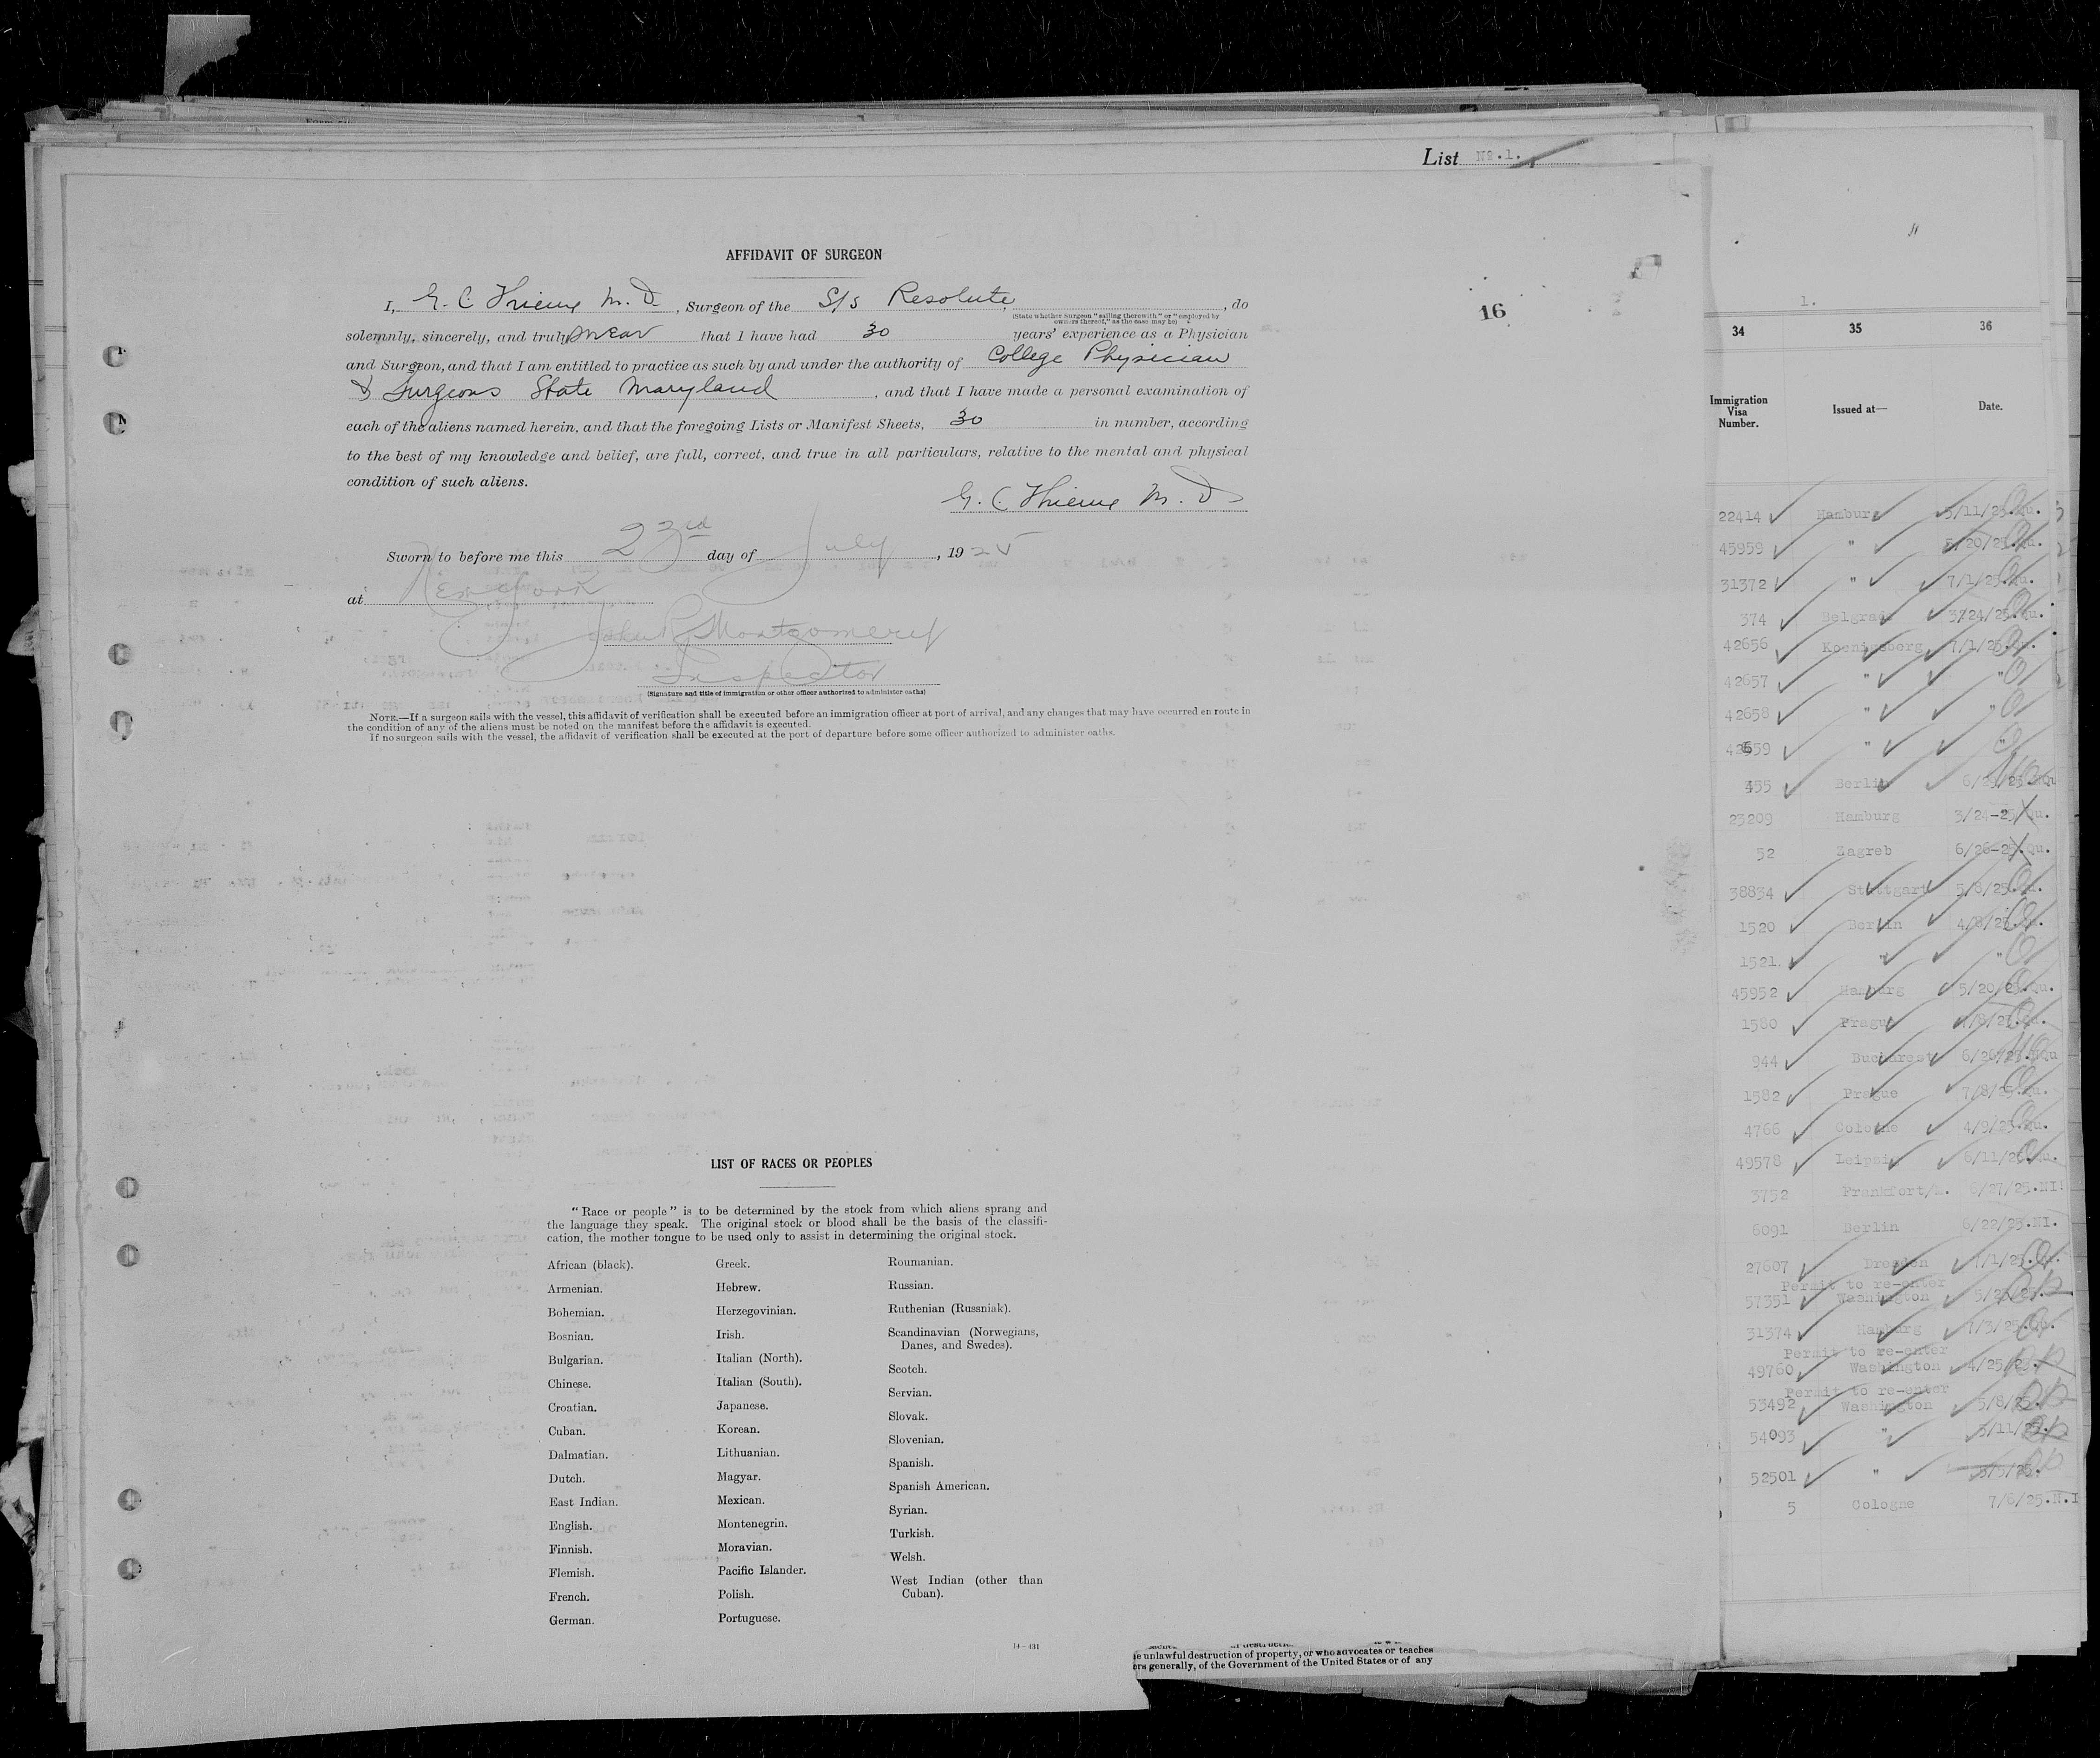 List No.1.
AFFIDAVIT OF SURGEON
I, G. C. Thieme M.D., Surgeon of the S/s Resolute, do
(State whether Surgeon "sailing therewith" or "employed by
owners thereof," as the case may be)
solemnly, sincerely, and truly swear that I have had 30 years' experience as a Physician
and Surgeon, and that I am entitled to practice as such by and under the authority of College Physician
& Surgeons State Maryland, and that I have made a personal examination of
each of the aliens named herein, and that the foregoing Lists or Manifest Sheets, 30 in number, according
to the best of my knowledge and belief, are full, correct, and true in all particulars, relative to the mental and physical
condition of such aliens.
G. C. Thieme M.D
Sworn to before me this 23rd day of July, 1925
at New York
John R Montgomery
Inspector
(Signature and title of immigration or other officer authorized to administer oaths)
NOTE.—If a surgeon sails with the vessel, this affidavit of verification shall be executed before an immigration officer at port of arrival, and any changes that may have occurred en route in
the condition of any of the aliens must be noted on the manifest before the affidavit is executed.
If no surgeon sails with the vessel, the affidavit of verification shall be executed at the port of departure before some officer authorized to administer oaths.
16
LIST OF RACES OR PEOPLES
"Race or people" is to be determined by the stock from which aliens sprang and
the language they speak. The original stock or blood shall be the basis of the classifi-
cation, the mother tongue to be used only to assist in determining the original stock.
African (black).
Armenian.
Bohemian.
Bosnian.
Bulgarian.
Chinese.
Croatian.
Cuban.
Dalmatian.
Dutch.
East Indian.
English.
Finnish.
Flemish.
French.
German.
Greek.
Hebrew.
Herzegovinian.
Irish.
Italian (North).
Italian (South).
Japanese.
Korean.
Lithuanian.
Magyar.
Mexican.
Montenegrin.
Moravian.
Pacific Islander.
Polish.
Portuguese.
Roumanian.
Russian.
Ruthenian (Russniak).
Scandinavian (Norwegians,
Danes, and Swedes).
Scotch.
Servian.
Slovak.
Slovenian.
Spanish.
Spanish American.
Syrian.
Turkish.
Welsh.
West Indian (other than
Cuban).
14-431
unlawful destruction of property, or who advocates or teaches
generally, of the Government of the United States or of any
1.
34 35 36
Immigration
Visa
Number.
Issued at—
Date.
22414 Hamburg 5/11/25.Qu.
45959 " 5/20/25.Qu.
31372 " 7/1/25.Qu.
374 Belgrade 3/24/25.Qu.
42656 Koenigsberg 7/1/25.Qu.
42657 " "
42658 " "
42659 " "
455 Berlin 6/25.NQu
23209 Hamburg 3/24-25.Qu.
52 Zagreb 6/26-25.Qu.
38834 Stuttgart 5/8/25.Qu.
1520 Berlin 4/8/25.Qu.
1521. " "
45952 Hamburg 5/20/25.Qu.
1580 Prague 7/8/25.Qu.
944 Bucharest 6/26/25.NQu
1582 Prague 7/8/25.Qu.
4766 Cologne 4/9/25.Qu.
49578 Leipsig 6/11/25.Qu.
3752 Frankfort/M. 6/27/25.NI
6091 Berlin 6/22/25.NI.
27607 Dresden 7/1/25.Qu.
Permit to re-enter
57351 Washington
31374 Hamburg 7/3/25.Qu.
Permit to re-enter
49760 Washington 4/25/25.
Permit to re-enter
53492 Washington 5/8/25.
54093 " 5/11/25.
52501 "
5 Cologne 7/6/25.N.I